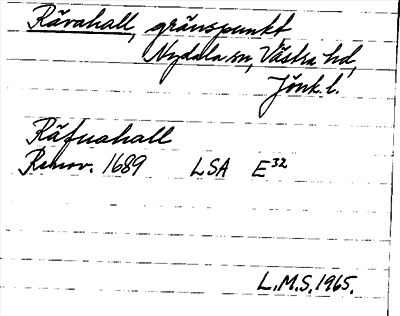 Rävahall, gränspunkt
Nydala sn, Västra hd,
Jönk. l.
Räfuahall
Renov. 1689 LSA E³²
L.M.S. 1965.